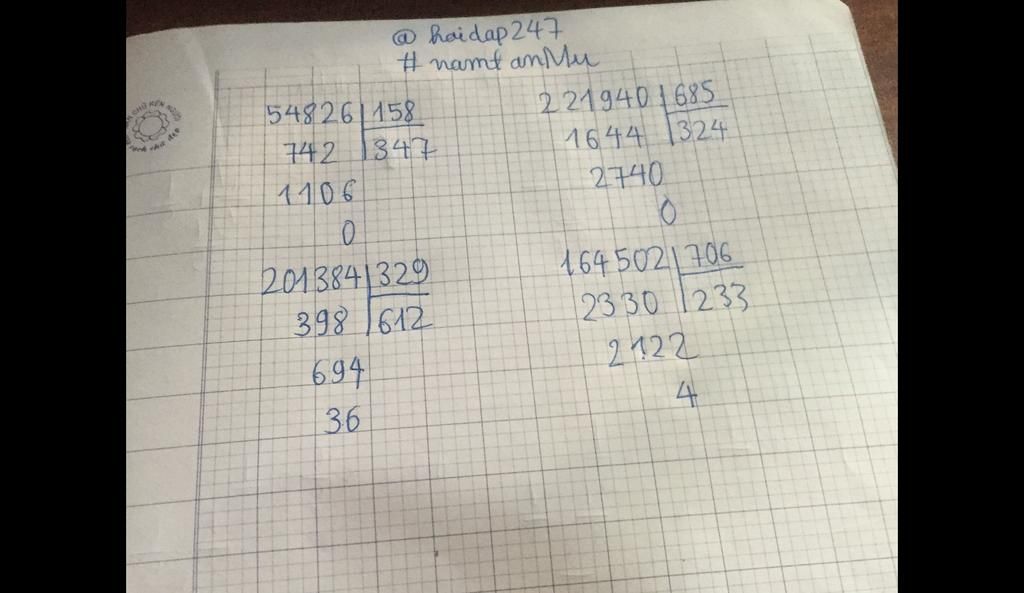 @ hoidap247
# namtanMu
54826 158
742 347
1106
0
221940 685
1644 324
2740
0
201384 329
398 612
694
36
164502 706
2330 233
2122
4